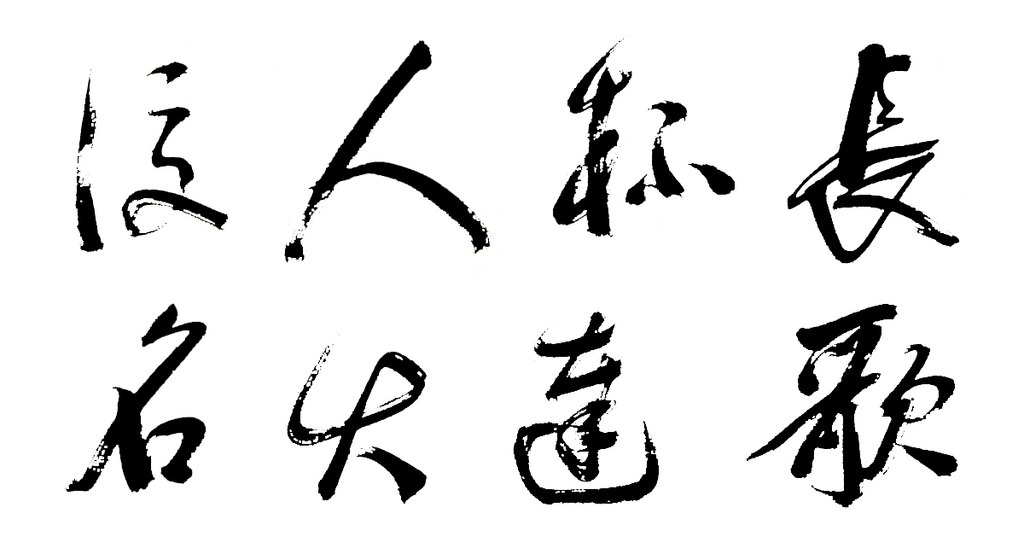 長歌
称達
人大
後名